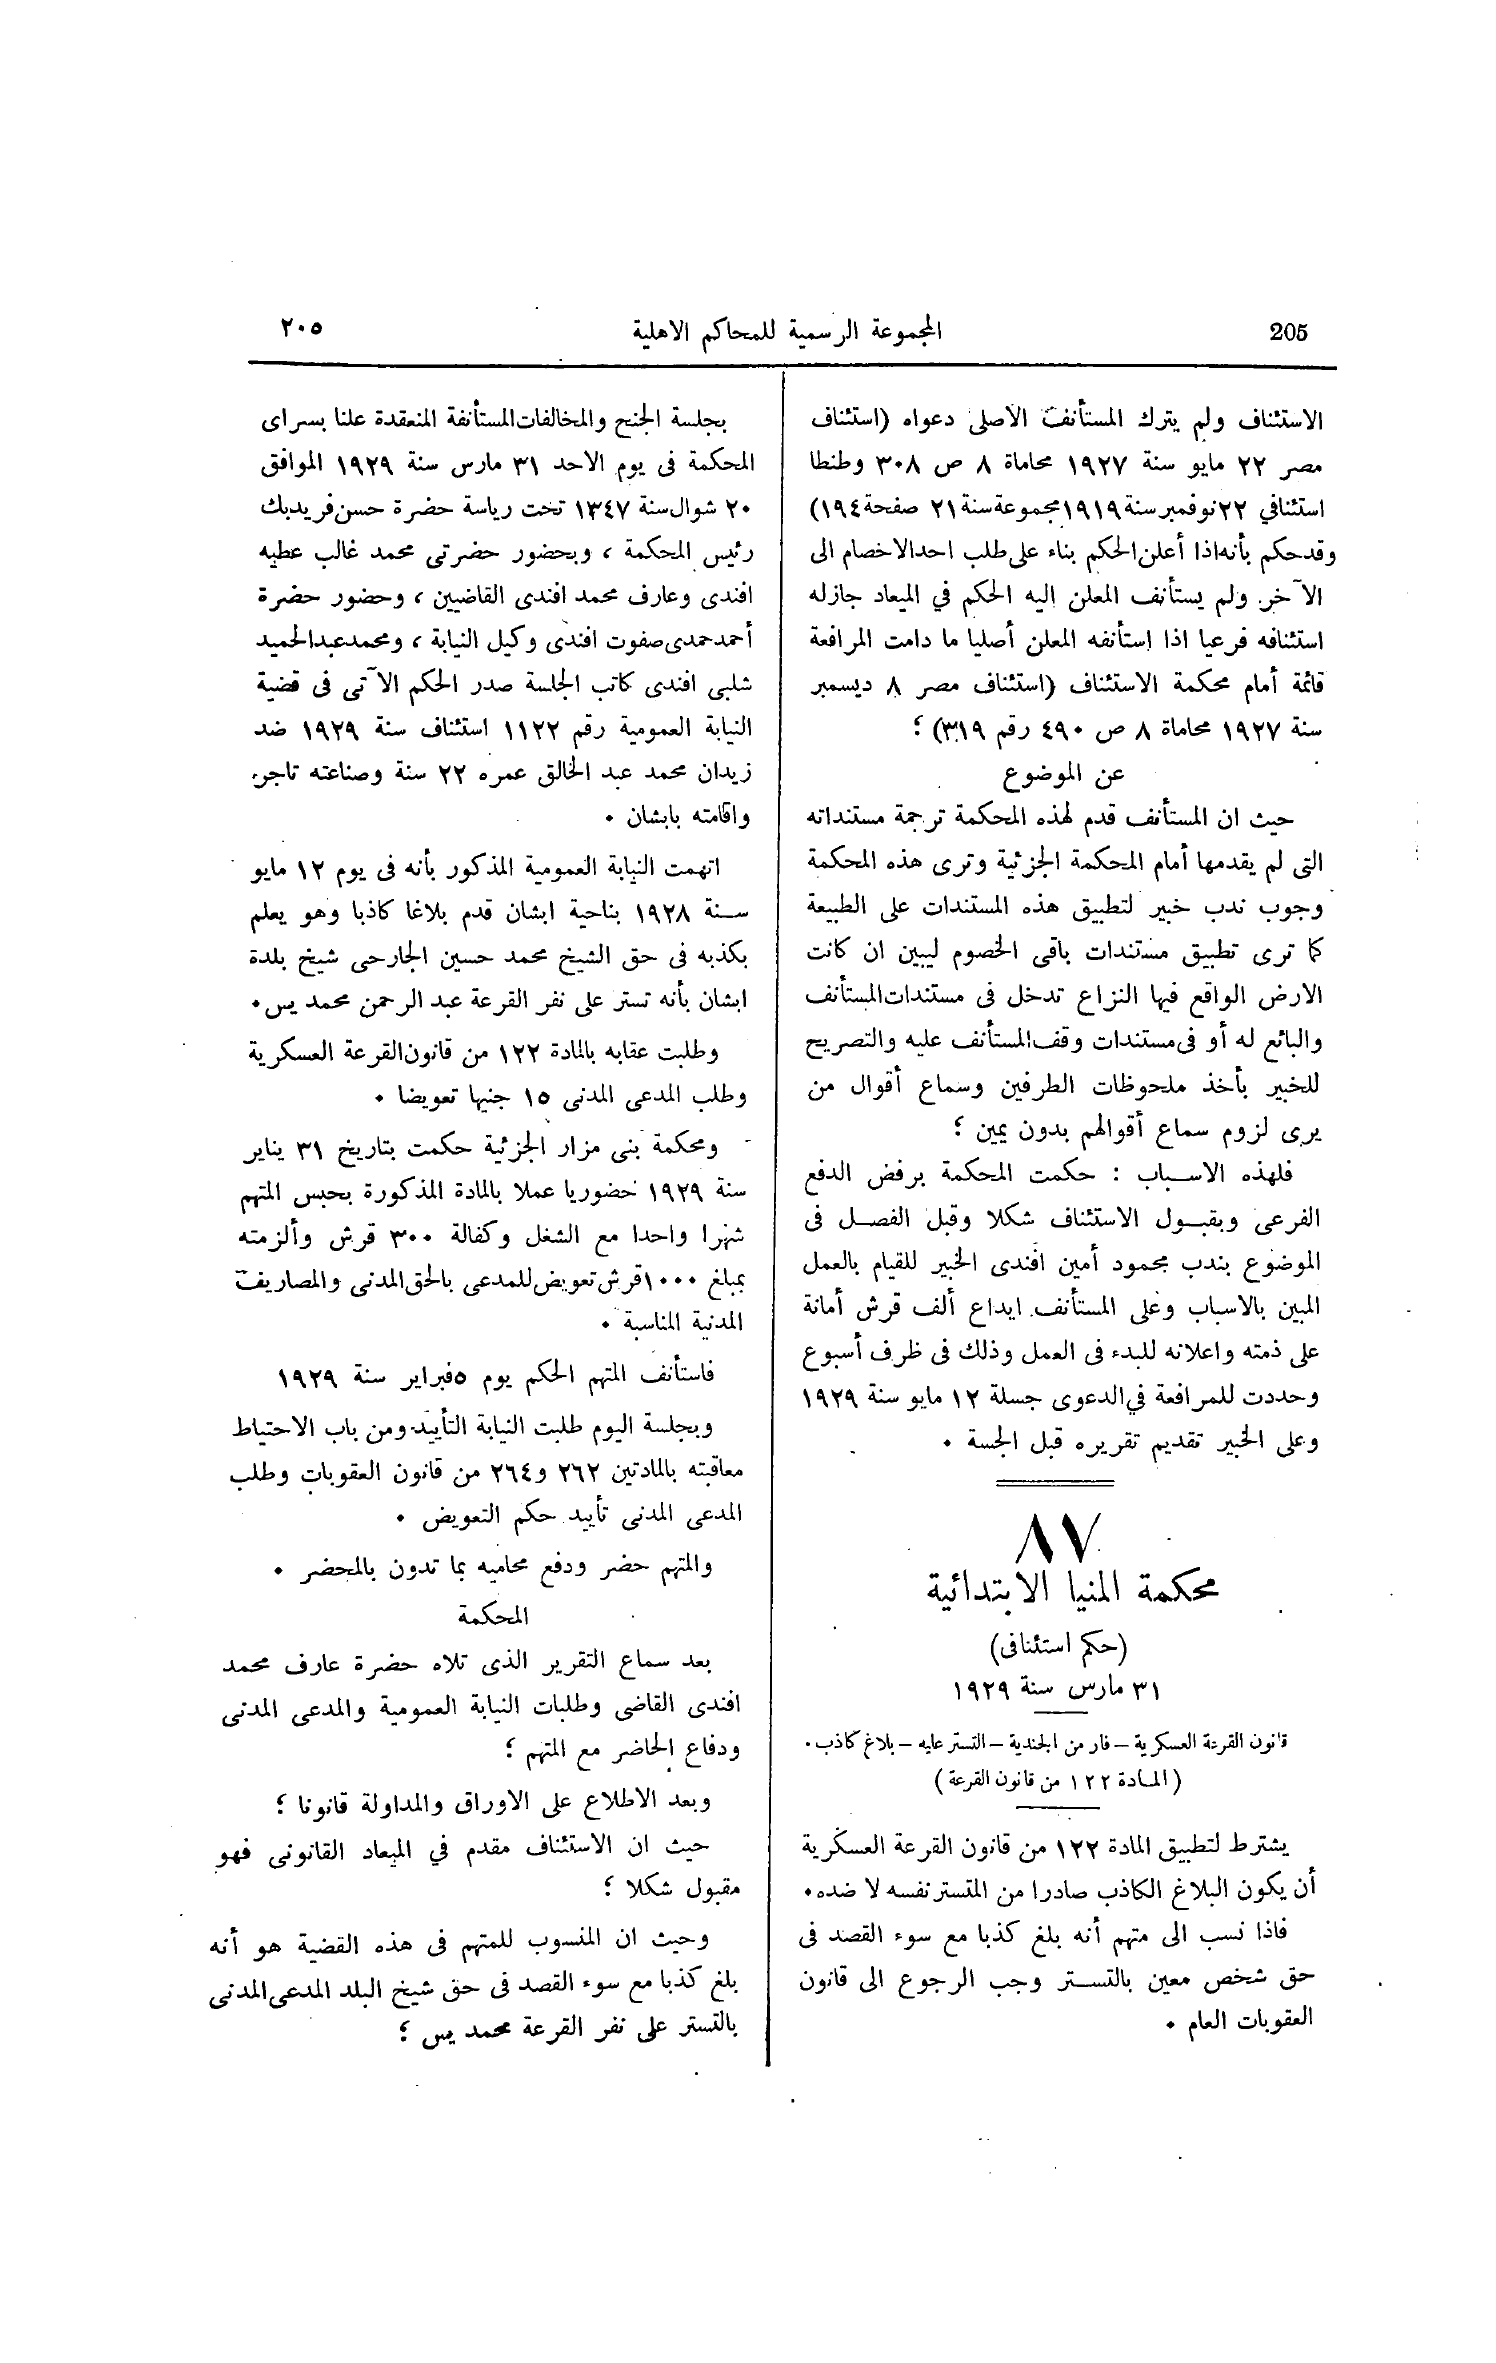 205
المجموعة الرسمية للمحاكم الاهلية
٢٠٥
الاستئناف ولم يترك المستأنف الأصلى دعواه (استئناف
مصر ٢٢ مايو سنة ١٩٢٧ محاماة ٨ ص ٣٠٨ وطنطا
استئنافي ٢٢ نوفمبر سنة ١٩١٩ مجموعة سنة ٢١ صفحة ١٩٤)
وقد حكم بأنه اذا أعلن الحكم بناء على طلب احد الاخصام الى
الآخر ولم يستأنف المعلن اليه الحكم في الميعاد جاز له
استئنافه فرعيا اذا استأنفه المعلن أصليا ما دامت المرافعة
قائمة أمام محكمة الاستئناف (استئناف مصر ٨ ديسمبر
سنة ١٩٢٧ محاماة ٨ ص ٤٩٠ رقم ٣١٩) ؛
عن الموضوع
حيث ان المستأنف قدم لهذه المحكمة ترجمة مستنداته
التى لم يقدمها أمام المحكمة الجزئية وترى هذه المحكمة
وجوب ندب خبير لتطبيق هذه المستندات على الطبيعة
كما ترى تطبيق مستندات باقى الخصوم ليبين ان كانت
الارض الواقع فيها النزاع تدخل فى مستندات المستأنف
والبائع له أو فى مستندات وقف المستأنف عليه والتصريح
للخبير بأخذ ملحوظات الطرفين وسماع أقوال من
يرى لزوم سماع أقوالهم بدون يمين ؛
فلهذه الاسباب : حكمت المحكمة برفض الدفع
الفرعى وبقبول الاستئناف شكلا وقبل الفصل فى
الموضوع بندب محمود أمين افندى الخبير للقيام بالعمل
المبين بالاسباب وعلى المستأنف ايداع ألف قرش أمانة
على ذمته واعلانه للبدء فى العمل وذلك فى ظرف أسبوع
وحددت للمرافعة في الدعوى جسلة ١٢ مايو سنة ١٩٢٩
وعلى الخبير تقديم تقريره قبل الجسة ٠
٨٧
محكمة المنيا الابتدائية
(حكم استئنافى)
٣١ مارس سنة ١٩٢٩
قانون القرعة العسكرية – فار من الجندية – التستر عليه – بلاغ كاذب ٠
( المادة ١٢٢ من قانون القرعة )
يشترط لتطبيق المادة ١٢٢ من قانون القرعة العسكرية
أن يكون البلاغ الكاذب صادرا من المتستر نفسه لا ضده ٠
فاذا نسب الى متهم أنه بلغ كذبا مع سوء القصد فى
حق شخص معين بالتستر وجب الرجوع الى قانون
العقوبات العام ٠
بجلسة الجنح والمخالفات المستأنفة المنعقدة علنا بسراى
المحكمة فى يوم الاحد ٣١ مارس سنة ١٩٢٩ الموافق
٢٠ شوال سنة ١٣٤٧ تحت رياسة حضرة حسن فريد بك
رئيس المحكمة ، وبحضور حضرتى محمد غالب عطيه
افندى وعارف محمد افندى القاضيين ، وحضور حضرة
أحمد حمدى صفوت افندى وكيل النيابة ، ومحمد عبد الحميد
شلبى افندى كاتب الجلسة صدر الحكم الآتى فى قضية
النيابة العمومية رقم ١١٢٢ استئناف سنة ١٩٢٩ ضد
زيدان محمد عبد الخالق عمره ٢٢ سنة وصناعته تاجر
واقامته بابشان ٠
اتهمت النيابة العمومية المذكور بأنه فى يوم ١٢ مايو
سنة ١٩٢٨ بناحية ابشان قدم بلاغا كاذبا وهو يعلم
بكذبه فى حق الشيخ محمد حسين الجارحى شيخ بلدة
ابشان بأنه تستر على نفر القرعة عبد الرحمن محمد يس ٠
وطلبت عقابه بالمادة ١٢٢ من قانون القرعة العسكرية
وطلب المدعى المدنى ١٥ جنيها تعويضا ٠
ومحكمة بنى مزار الجزئية حكمت بتاريخ ٣١ يناير
سنة ١٩٢٩ حضوريا عملا بالمادة المذكورة بحبس المتهم
شهرا واحدا مع الشغل وكفالة ٣٠٠ قرش وألزمته
بمبلغ ١٠٠٠ قرش تعويض للمدعى بالحق المدنى والمصاريف
المدنية المناسبة ٠
فاستأنف المتهم الحكم يوم ٥ فبراير سنة ١٩٢٩
وبجلسة اليوم طلبت النيابة التأييد ومن باب الاحتياط
معاقبته بالمادتين ٢٦٢ و ٢٦٤ من قانون العقوبات وطلب
المدعى المدنى تأييد حكم التعويض ٠
والمتهم حضر ودفع محاميه بما تدون بالمحضر ٠
المحكمة
بعد سماع التقرير الذى تلاه حضرة عارف محمد
افندى القاضى وطلبات النيابة العمومية والمدعى المدنى
ودفاع الحاضر مع المتهم ؛
وبعد الاطلاع على الاوراق والمداولة قانونا ؛
حيث ان الاستئناف مقدم في الميعاد القانونى فهو
مقبول شكلا ؛
وحيث ان المنسوب للمتهم فى هذه القضية هو أنه
بلغ كذبا مع سوء القصد فى حق شيخ البلد المدعى المدنى
بالتستر على نفر القرعة محمد يس ؛